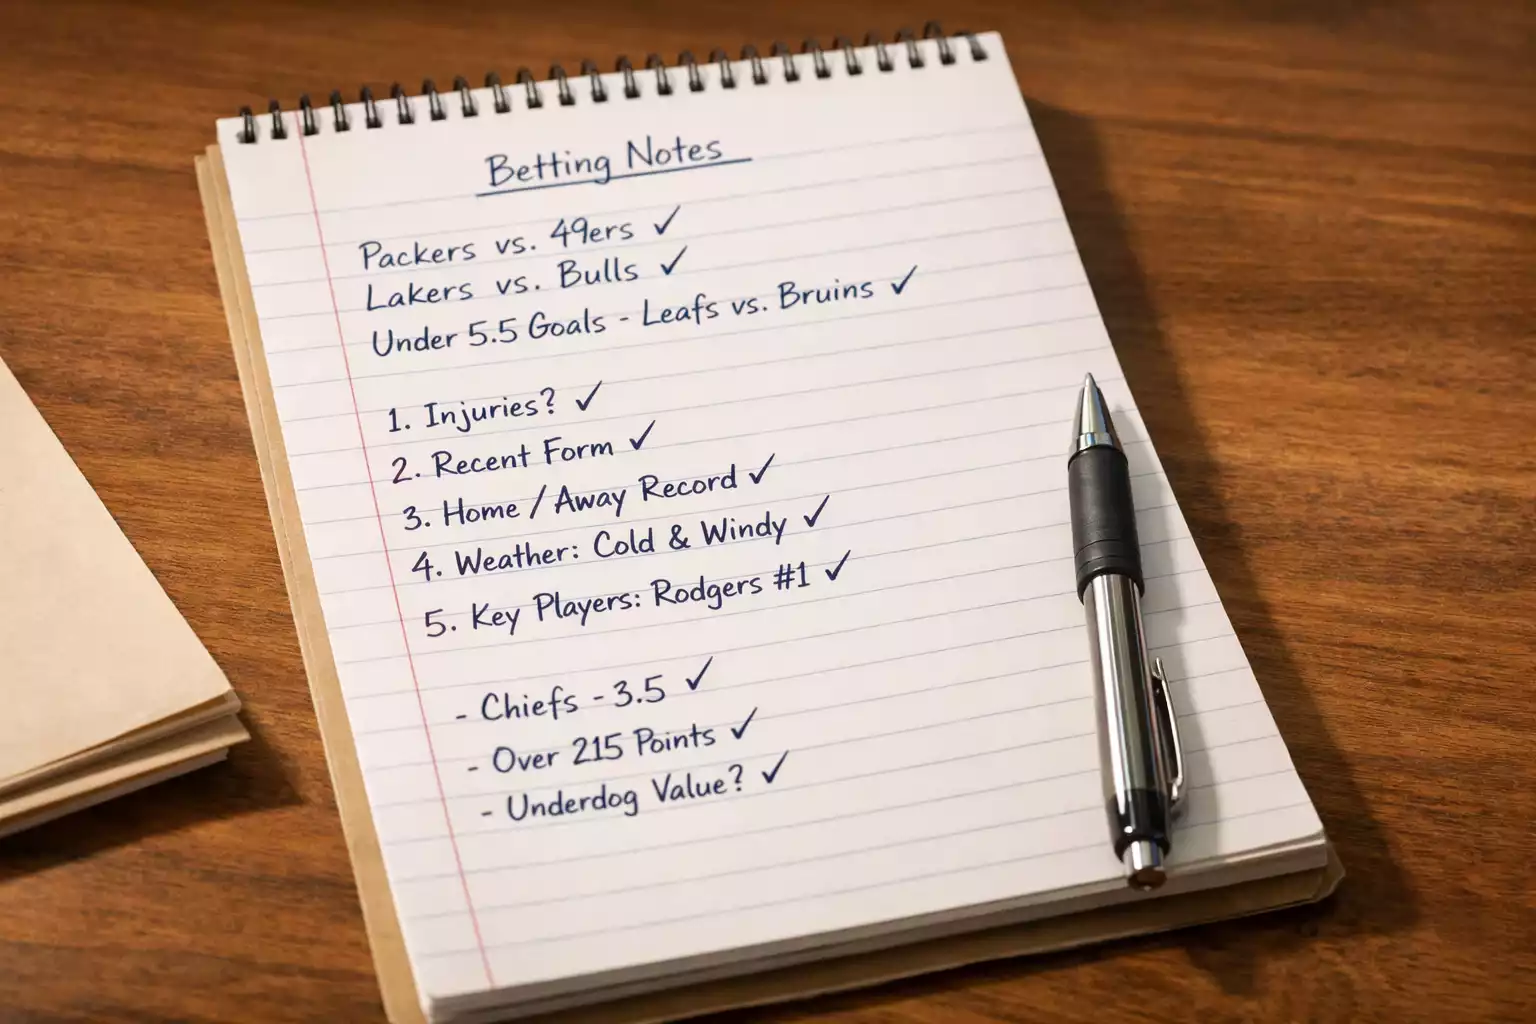 Betting Notes
Packers vs. 49ers ✓
Lakers vs. Bulls ✓
Under 5.5 Goals - Leafs vs. Bruins ✓
1. Injuries? ✓
2. Recent Form ✓
3. Home / Away Record ✓
4. Weather: Cold & Windy ✓
5. Key Players: Rodgers #1 ✓
- Chiefs - 3.5 ✓
- Over 215 Points ✓
- Underdog Value? ✓